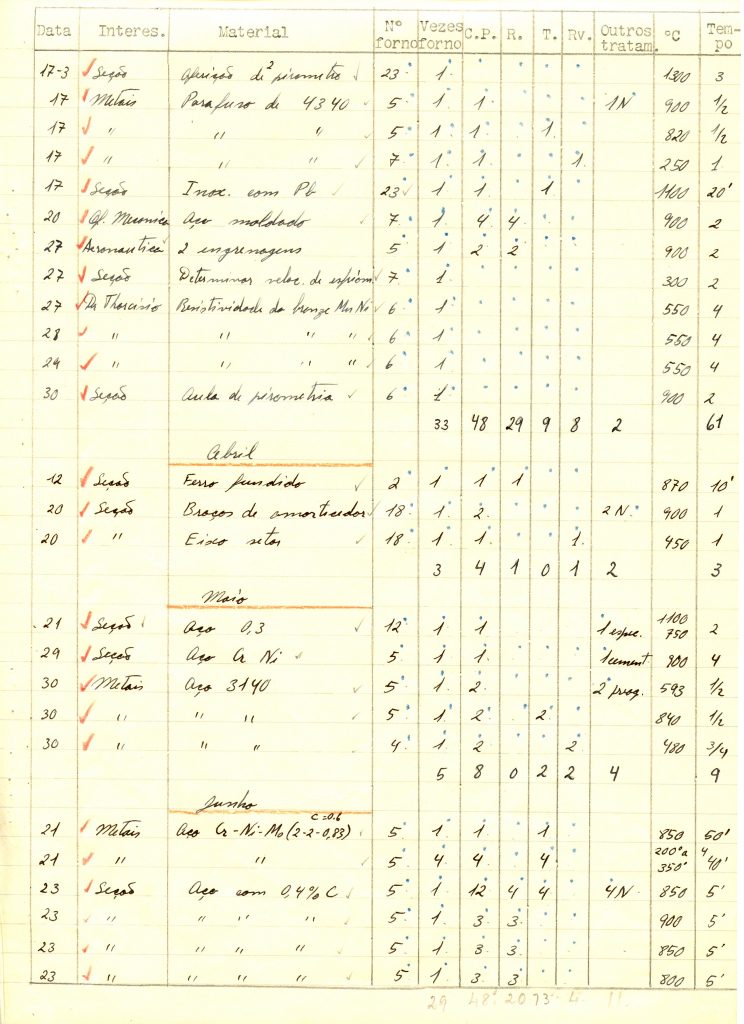 Data Interes. Material Nº forno Vezes forno C.P. R. T. Rv. Outros tratam. ºC Tem-po
17-3 Seção Aferição de 2 pirometro 23 1 1300 3
17 Metais Parafuso de 4340 5 1 1 1N 900 1/2
17 " " " 5 1 1 1 820 1/2
17 " " " 7 1 1 1 250 1
17 Seção Inox. com Pb 23 1 1 1 1100 20'
20 Of. Mecanica Aço moldado 7 1 4 4 900 2
27 Aeronautica 2 engrenagens 5 1 2 2 900 2
27 Seção Determinar veloc. de 7 1 300 2
27 Dr Tharcisio Resistividade do bronze Mn Ni 6 1 550 4
28 " " " " 6 1 550 4
29 " " " " 6 1 550 4
30 Seção Aula de pirometria 6 1 900 2
33 48 29 9 8 2 61
Abril
12 Seção Ferro fundido 2 1 1 1 870 10'
20 Seção Braços de amortecedor 18 1 2 2N. 900 1
20 " Eixo setor 18 1 1 1 450 1
3 4 1 0 1 2 3
Maio
21 Seção Aço 0,3 12 1 1 1 espec. 1100 750 2
29 Seção Aço Cr Ni 5 1 1 1 cement 900 4
30 Metais Aço 3140 5 1 2 2 593 1/2
30 " " " 5 1 2 2 840 1/2
30 " " " 4 1 2 2 480 3/4
5 8 0 2 2 4 9
Junho
C=0.6
21 Metais Aço Cr-Ni-Mo (2-2-0,83) 5 1 1 1 850 50'
21 " " 5 4 4 4 200º a 350º 4 40'
23 Seção Aço com 0,4% C 5 1 12 4 4 4N 850 5'
23 " " " " 5 1 3 3 900 5'
23 " " " " 5 1 3 3 850 5'
23 " " " " 5 1 3 3 800 5'
29 48 20 13 4 11